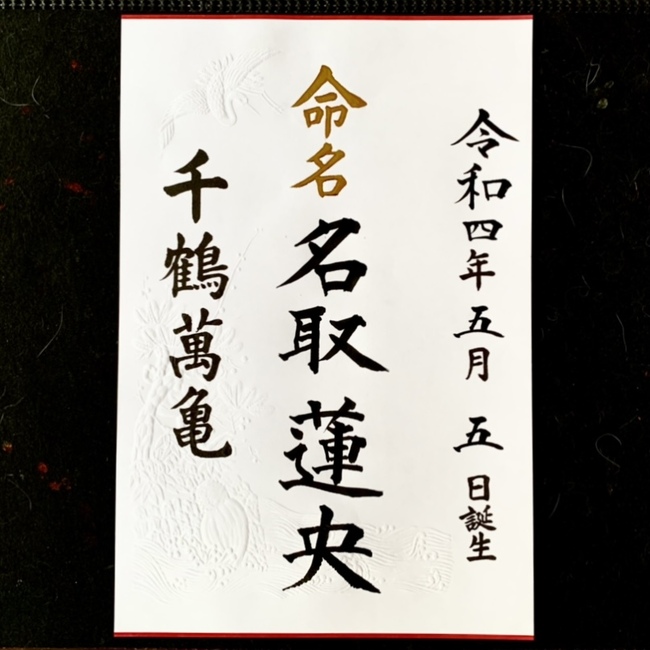 令和四年五月五日誕生
命名
名取蓮央
千鶴萬亀